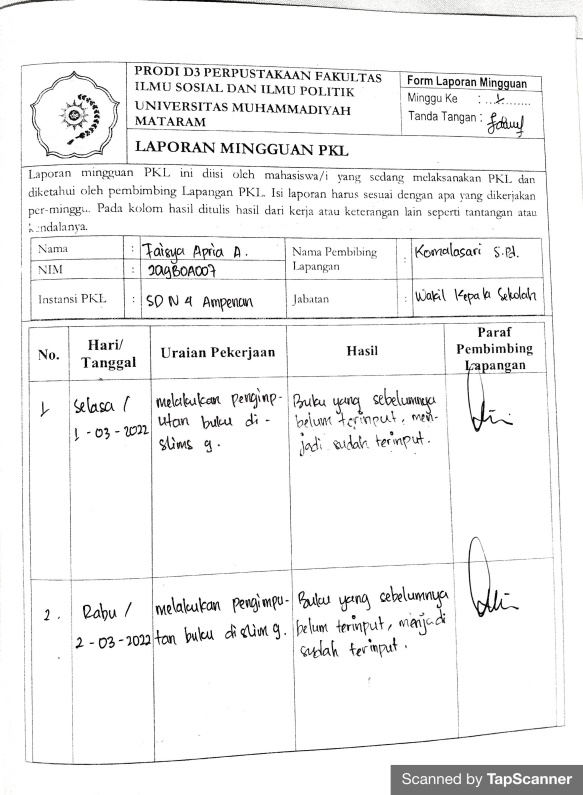 PRODI D3 PERPUSTAKAAN FAKULTAS
ILMU SOSIAL DAN ILMU POLITIK
UNIVERSITAS MUHAMMADIYAH
MATARAM
LAPORAN MINGGUAN PKL
Form Laporan Mingguan
Minggu Ke : ...1........
Tanda Tangan :
Laporan mingguan PKL ini diisi oleh mahasiswa/i yang sedang melaksanakan PKL dan
diketahui oleh pembimbing Lapangan PKL. Isi laporan harus sesuai dengan apa yang dikerjakan
per-minggu. Pada kolom hasil ditulis hasil dari kerja atau keterangan lain seperti tantangan atau
kendalanya.
Nama : Faisya Apria A.
NIM :
Instansi PKL : SD N 4 Ampenan
Nama Pembibing
Lapangan : Komalasari S.Pd.
Jabatan : Wakil Kepala Sekolah
No. Hari/ Tanggal Uraian Pekerjaan Hasil Paraf Pembimbing Lapangan
1 Selasa /
1 - 03 - 2022
melakukan penginp-
utan buku di -
slims 9.
Buku yang sebelumnya
belum terinput, men-
jadi sudah terinput.
2. Rabu /
2 - 03 - 2022
melakukan pengimpu-
tan buku di slim 9.
Buku yang sebelumnya
belum terinput, menjadi
sudah terinput.
Scanned by TapScanner